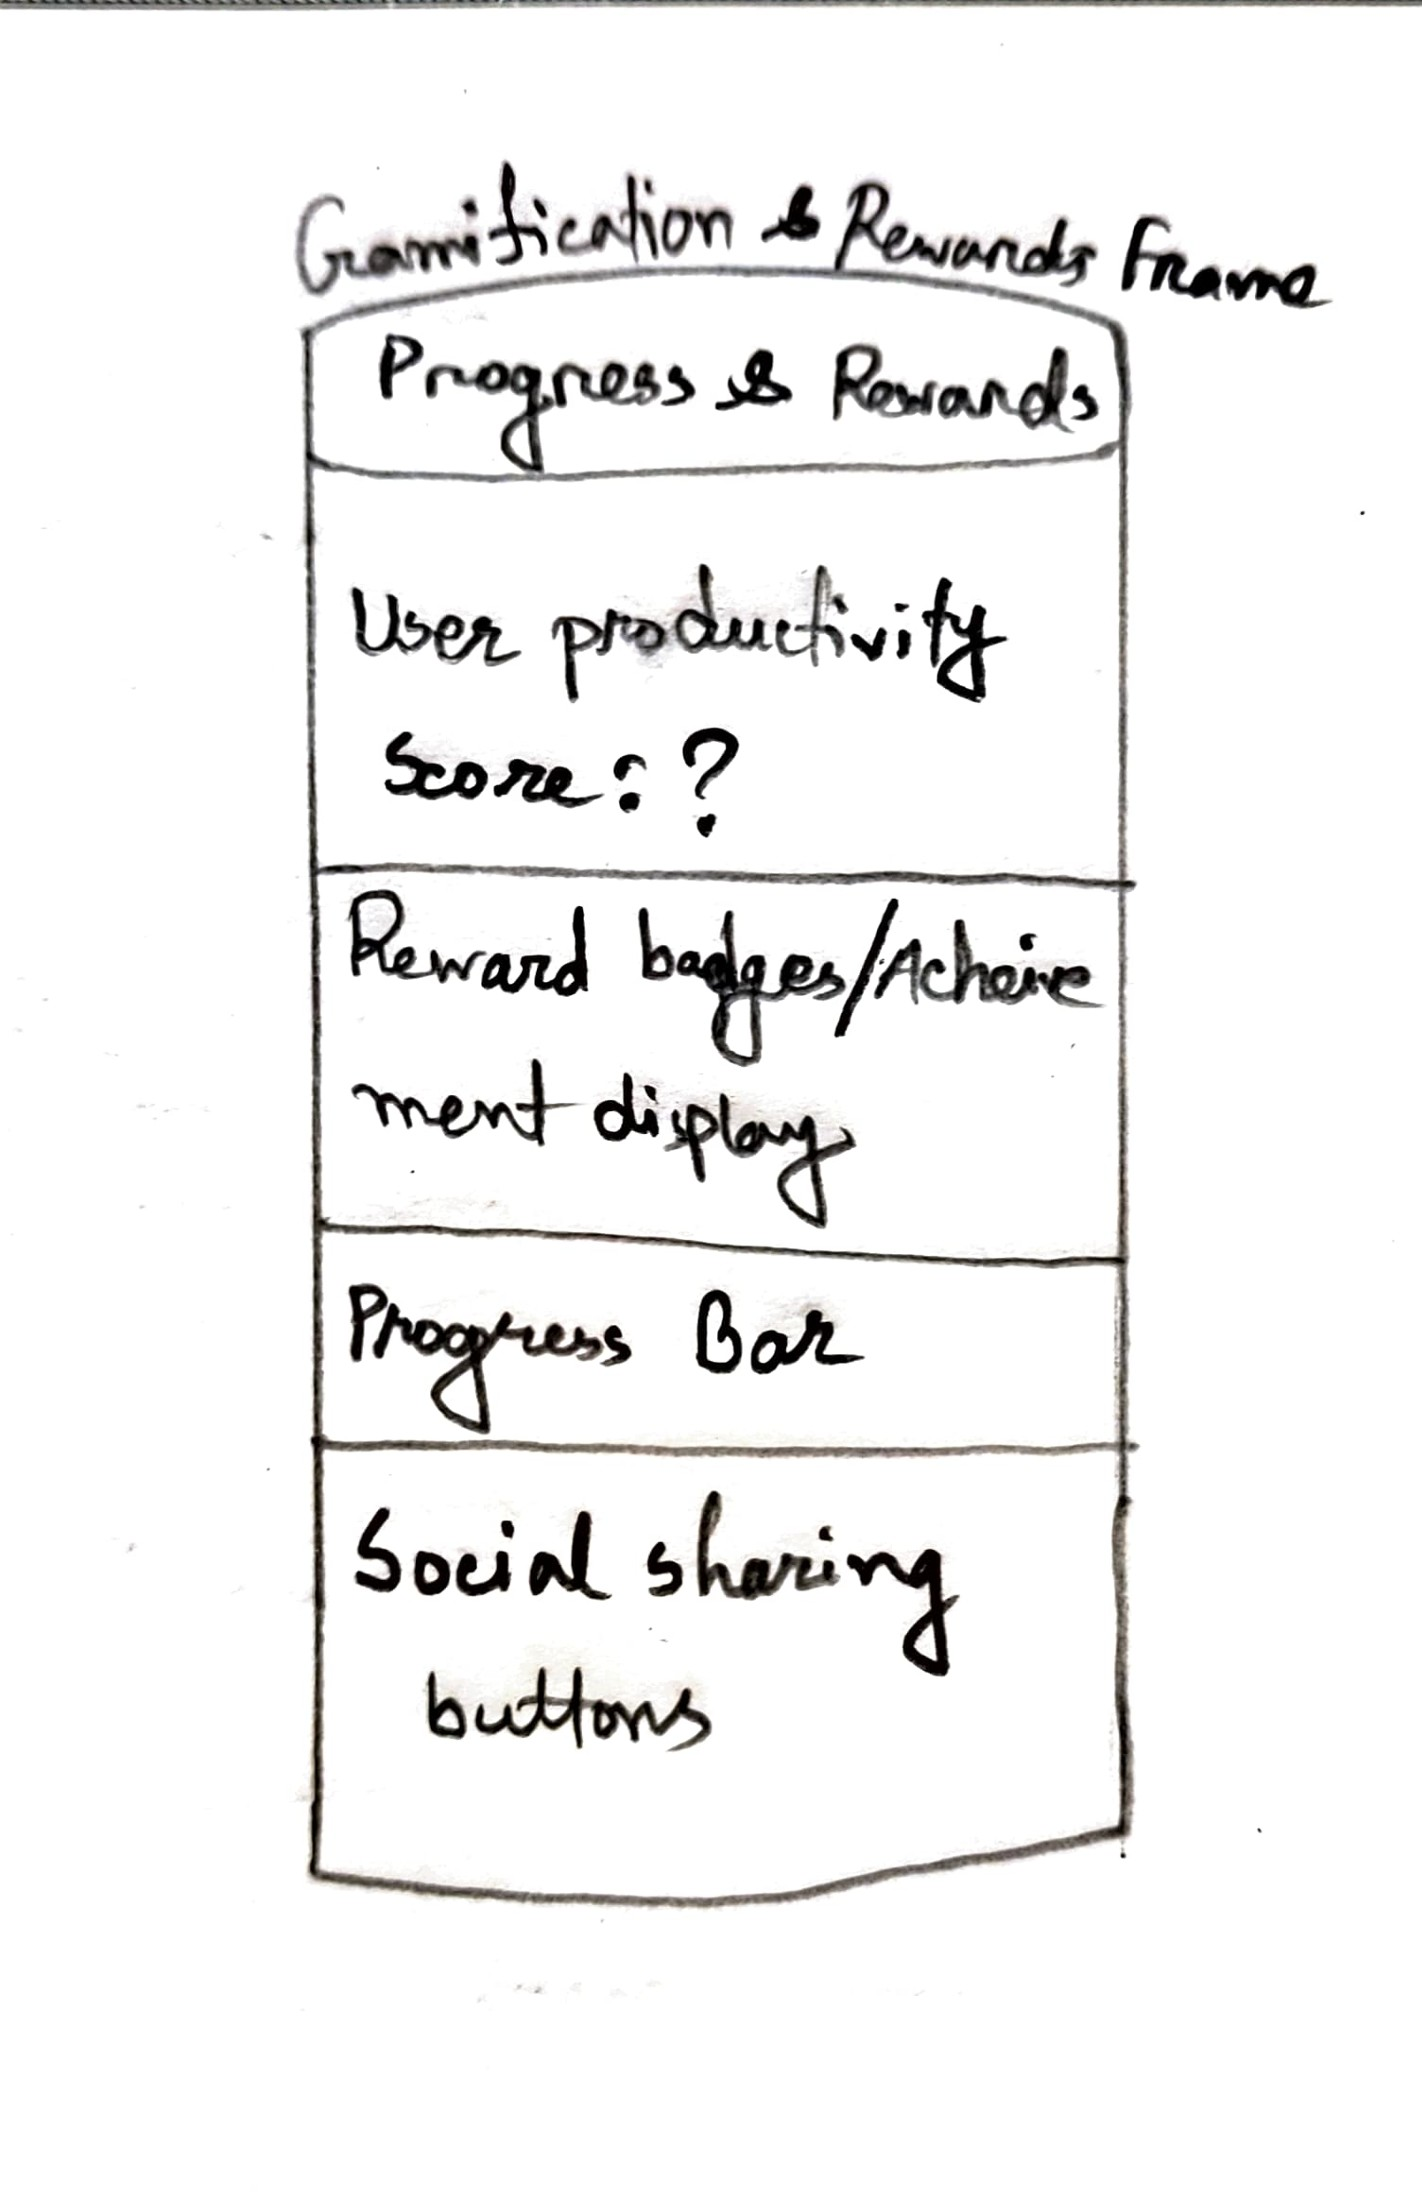 Gamification & Rewards Frame
Progress & Rewards
User productivity
Score: ?
Reward badges/Acheive
ment display
Progress Bar
Social sharing
buttons